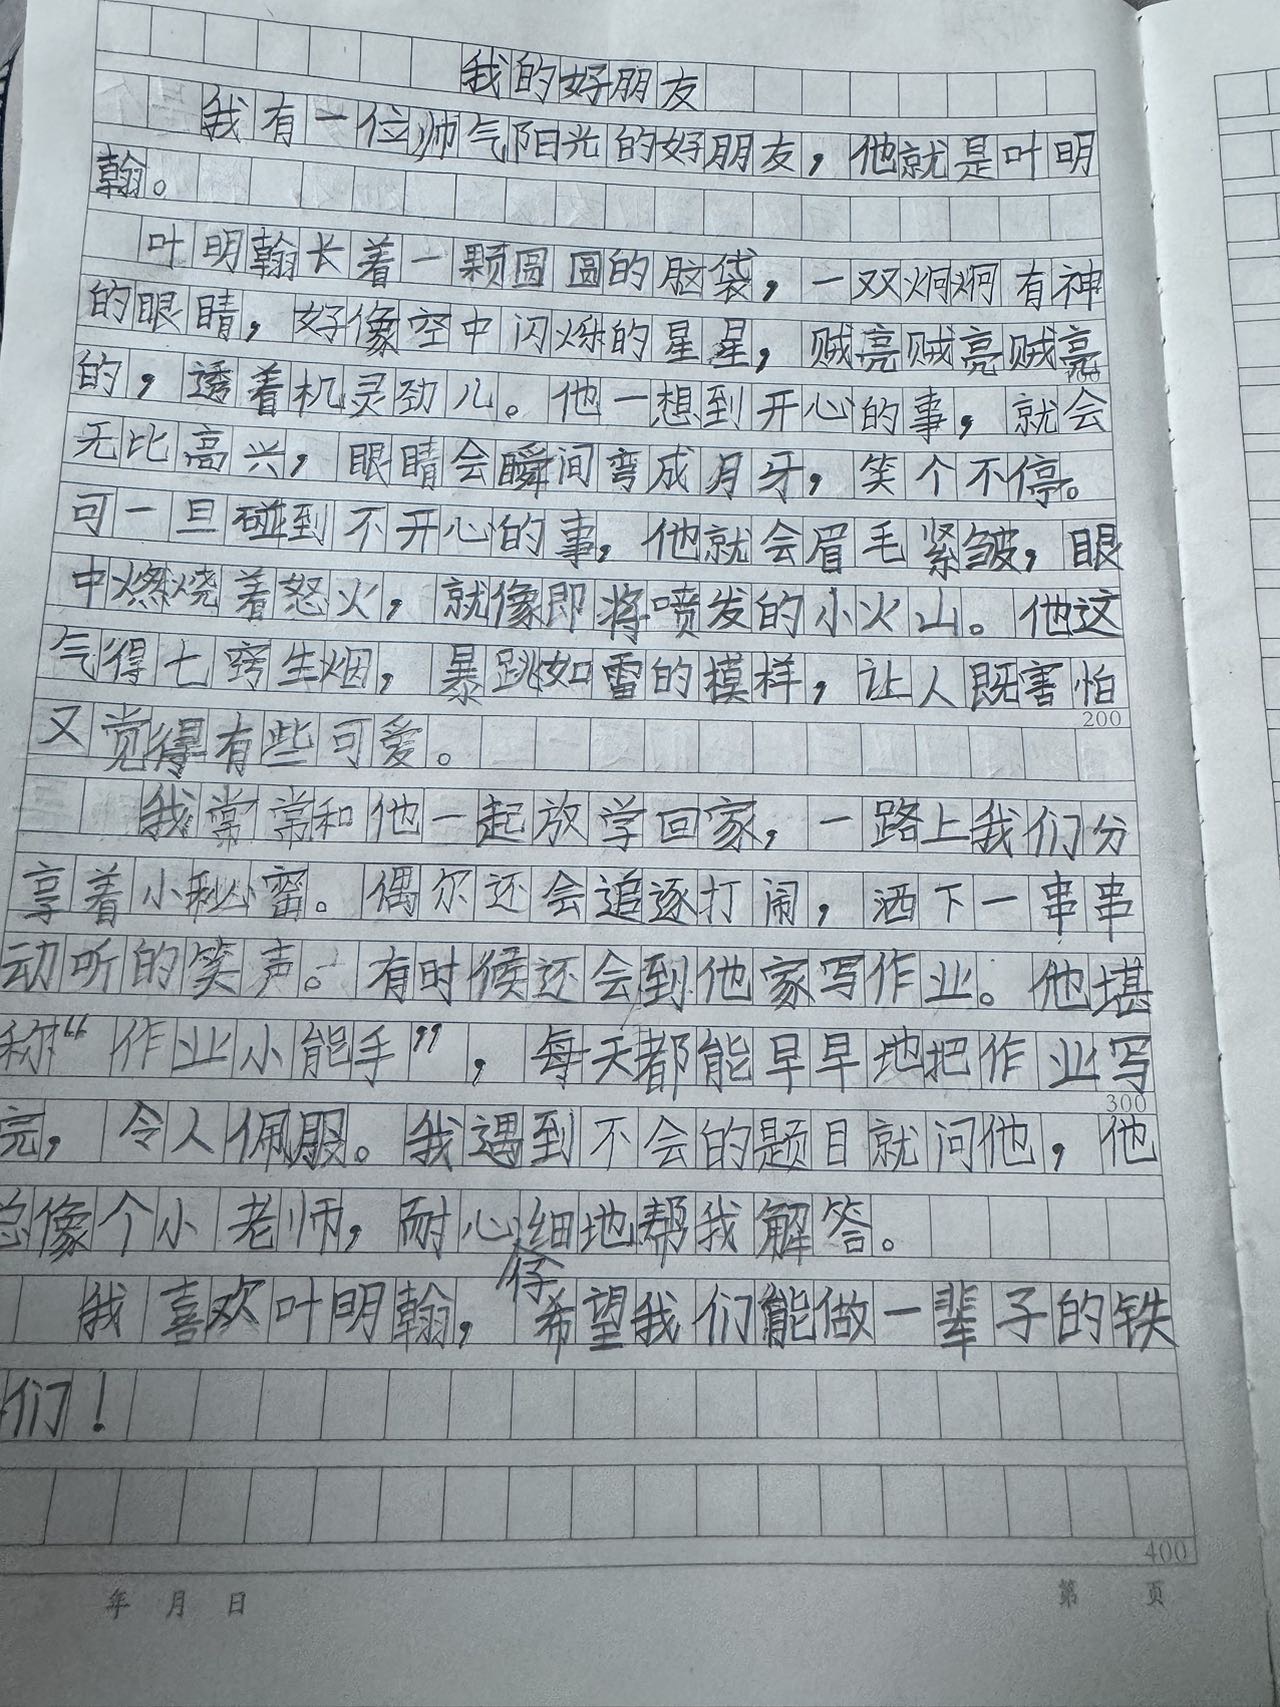 我的好朋友
我有一位帅气阳光的好朋友，他就是叶明
翰。
叶明翰长着一颗圆圆的脑袋，一双炯炯有神
的眼睛，好像空中闪烁的星星，贼亮贼亮贼亮
的，透着机灵劲儿。他一想到开心的事，就会
无比高兴，眼睛会瞬间弯成月牙，笑个不停。
可一旦碰到不开心的事，他就会眉毛紧皱，眼
中燃烧着怒火，就像即将喷发的小火山。他这
气得七窍生烟，暴跳如雷的模样，让人既害怕
200
又觉得有些可爱。
我常常和他一起放学回家，一路上我们分
享着小秘密。偶尔还会追逐打闹，洒下一串串
动听的笑声。有时候还会到他家写作业。他堪
称“作业小能手”，每天都能早早地把作业写
300
完，令人佩服。我遇到不会的题目就问他，他
总像个小老师，耐心仔细地帮我解答。
我喜欢叶明翰，希望我们能做一辈子的铁
们！
400
年 月 日
第 页